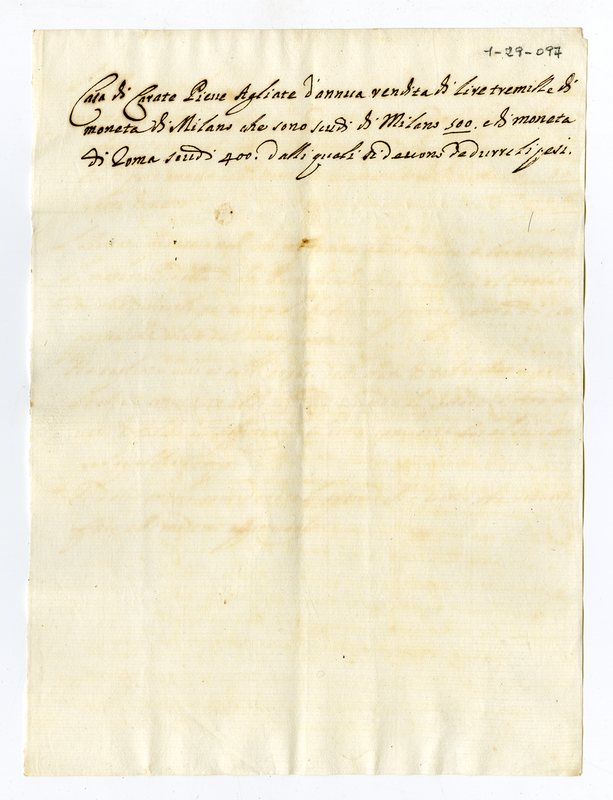 1-29-097
Casa di Carate Pieve Agliate d'annua rendita di lire tremille di
moneta di Milano che sono scudi di Milano 500. e di moneta
di Roma scudi 400. dalli quali si devono dedurre li pesi.